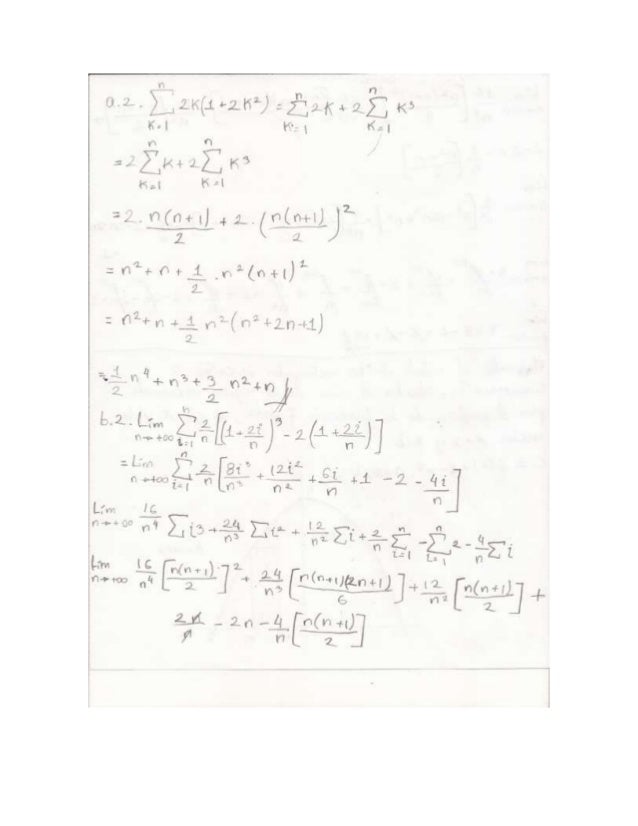 a.2. \sum_{k=1}^{n} 2k(1+2k²) = \sum_{k=1}^{n} 2k + 2 \sum_{k=1}^{n} k³
= 2 \sum_{k=1}^{n} k + 2 \sum_{k=1}^{n} k³
= 2 . \frac{n(n+1)}{2} + 2 . ( \frac{n(n+1)}{2} )²
= n² + n + \frac{1}{2} . n² (n+1)²
= n² + n + \frac{1}{2} n² (n² + 2n + 1)
= \frac{1}{2} n⁴ + n³ + \frac{3}{2} n² + n //
b.2. Lim_{n→+∞} \sum_{i=1}^{n} \frac{2}{n} [ (1 + \frac{2i}{n})³ - 2 (1 + \frac{2i}{n}) ]
= Lim_{n→+∞} \sum_{i=1}^{n} \frac{2}{n} [ \frac{8i³}{n³} + \frac{12i²}{n²} + \frac{6i}{n} + 1 - 2 - \frac{4i}{n} ]
Lim_{n→+∞} \frac{16}{n⁴} \sum i³ + \frac{24}{n³} \sum i² + \frac{12}{n²} \sum i + \frac{2}{n} \sum_{i=1}^{n} - \sum_{i=1}^{n} 2 - \frac{4}{n} \sum i
Lim_{n→+∞} \frac{16}{n⁴} [ \frac{n(n+1)}{2} ]² + \frac{24}{n³} [ \frac{n(n+1)(2n+1)}{6} ] + \frac{12}{n²} [ \frac{n(n+1)}{2} ] +
\frac{2n}{n} - 2n - \frac{4}{n} [ \frac{n(n+1)}{2} ]